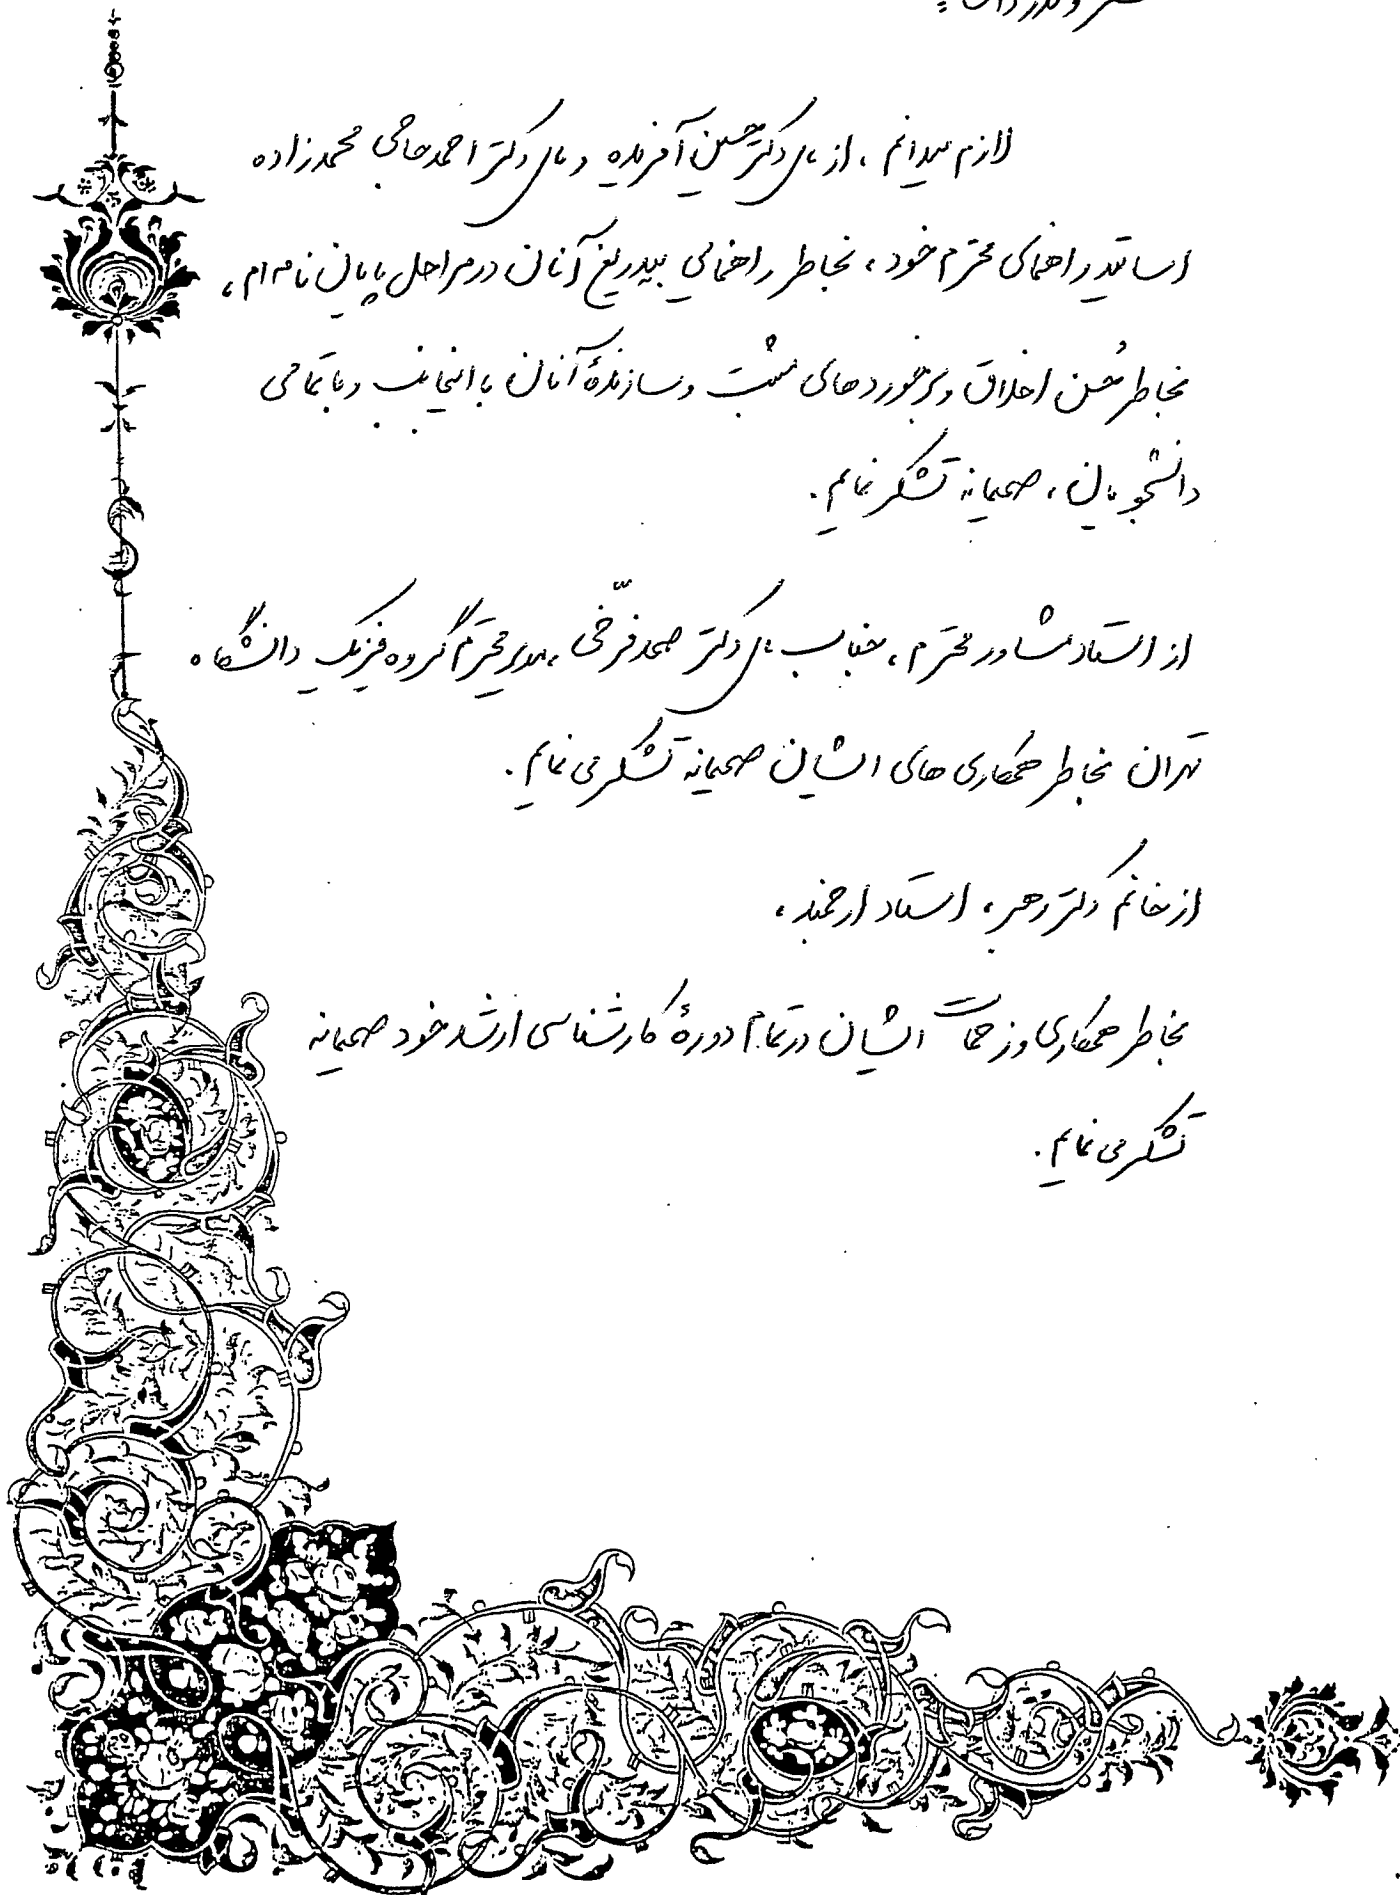 لازم میدانم ، از آقای دکتر حسین آفریده و آقای دکتر احمد حاجی محمدزاده
اساتید راهنمای محترم خود ، بخاطر راهنمایی بیدریغ آنان در مراحل پایان نامه ام ،
بخاطر حُسن اخلاق و برخوردهای مثبت و سازندهٔ آنان با اینجانب و با تمامی
دانشجویان ، صمیمانه تشکر نمایم .
از استاد مشاور محترم ، جناب آقای دکتر صمد فرّخی ، مدیر محترم گروه فیزیک دانشگاه
تهران بخاطر همکاری های ایشان صمیمانه تشکر می نمایم .
از خانم دکتر رهبر ، استاد ارجمند ،
بخاطر همکاری و زحمات ایشان در تمام دورهٔ کارشناسی ارشد خود صمیمانه
تشکر می نمایم .